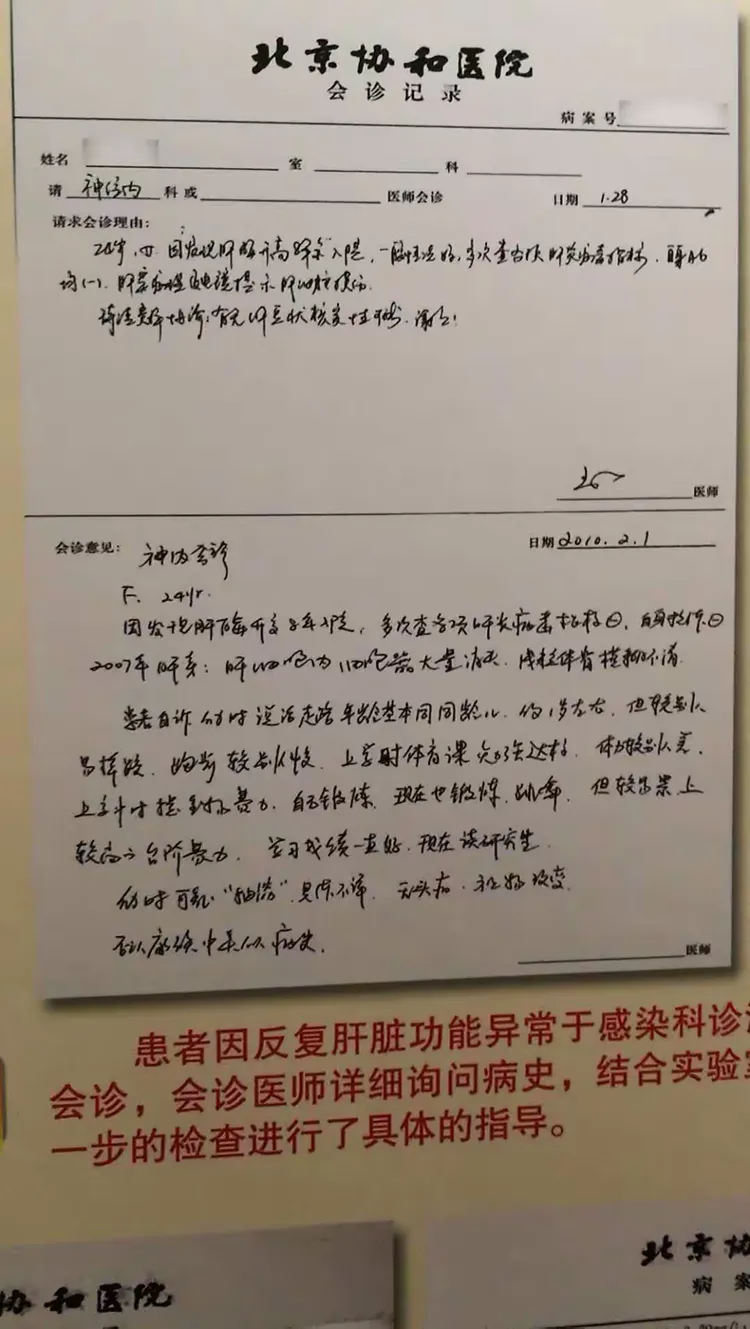 北京协和医院
会诊记录
病案号
姓名 室 科
请 神经内 科或 医师会诊 日期 1.28
请求会诊理由：
24岁，因发现肝酶升高 入院，一般情况好，多次查各项肝炎病毒指标、自身Ab
均(-)，肝穿 提示肝
请 协诊：有无肝豆状核变性可能，谢谢！
医师
会诊意见： 神内会诊 日期 2010.2.1
F. 24yr.
因发现肝酶升高 年入院，多次查各项肝炎病毒指标⊖，自身抗体⊖
2007年肝穿：肝细胞内 大量 ，线粒体脊模糊不清
患者自诉幼时说话走路年龄基本同同龄儿，约1岁左右，但较别人
易摔跤，跑步较别人慢，上学时体育课 达标，体力较别人差，
上 费力，自己锻炼，现在也锻炼， ，但较 上
较高之台阶费力，学习成绩一直好，现在读研究生
幼时可疑“抽搐”，具体不详，无头痛、 改变
否认家族中类似病史。
医师
患者因反复肝脏功能异常于感染科诊
会诊，会诊医师详细询问病史，结合实验室
一步的检查进行了具体的指导。
协和医院
北京协
病案